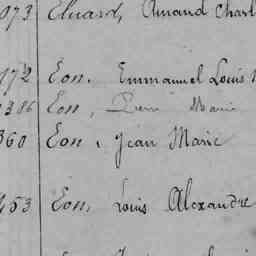 073 Eluard, Amand Charl
172 Eon. Emmanuel Louis
386 Eon, Pierre Marie
360 Eon, Jean Marie
453 Eon, Louis Alexandre